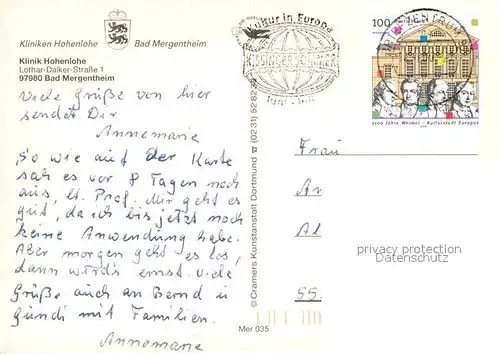 Kliniken Hohenlohe
Bad Mergentheim
Klinik Hohenlohe
Lothar-Daiker-Straße 1
97980 Bad Mergentheim
Viele Grüße von hier
sendet Dir
Annemarie
So wie auf der Karte
sah es vor 8 Tagen noch
aus, lt. Prof. Mir geht es
gut, da ich bis jetzt noch
keine Anwendung habe.
Aber morgen geht es los,
dann wird's ernst. Viele
Grüße auch an Bernd u
Gundi mit Familien.
Annemarie
Mer 035
© Cramers Kunstanstalt Dortmund (02 31) 52 82
Kultur in Europa
KISSINGER SOMMER
BRIEFZENTRUM
100
1100 Jahre Weimar · Kulturstadt Europas
Frau
Ar
Al
55
privacy protection
Datenschutz